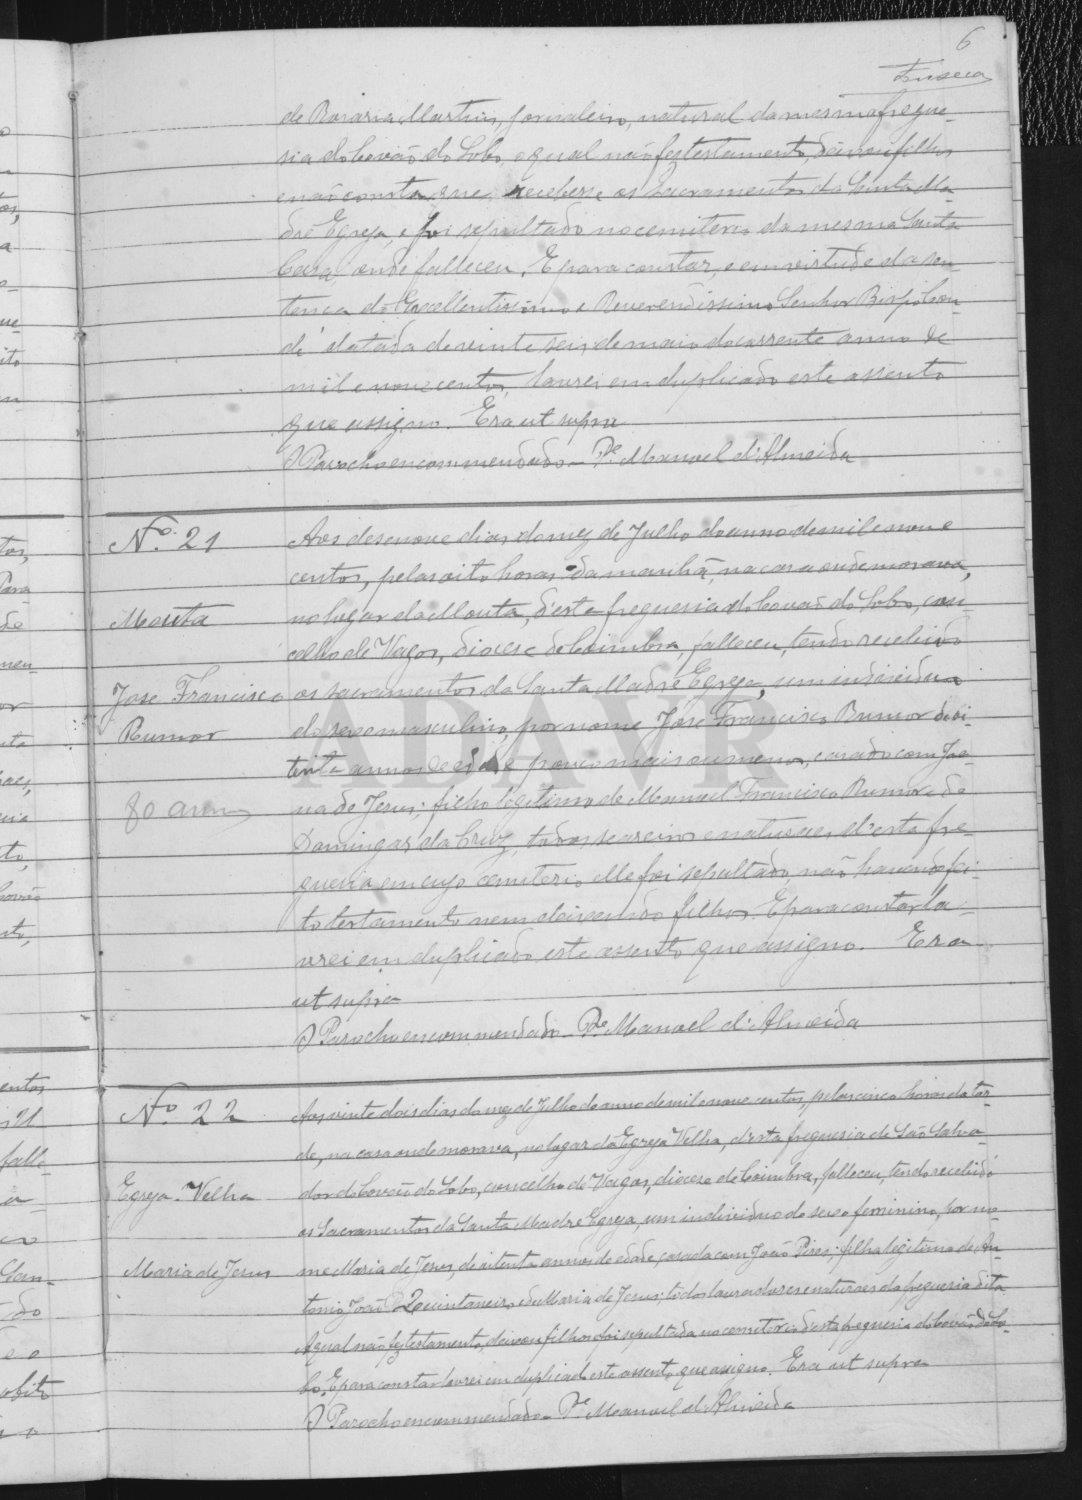 6
Fonseca
de Rosaria Martins, jornaleiro, natural da mesma fregue-
sia do Covão do Lobo, o qual não fez testamento, deixou filhos
e não consta que recebesse os Sacramentos da Santa Ma-
dre Egreja, e foi sepultado no cemiterio da mesma Santa
Casa onde falleceu. E para constar, e em virtude da sen-
tença do Excellentissimo e Reverendissimo Senhor Bispo Con-
de datada de vinte seis de maio do corrente anno de
mil e nove centos, lavrei em duplicado este assento
que assigno. Era ut supra
O Parocho encommendado - Pe. Manoel d'Almeida
No. 21
Mouta
Jose Francisco
Rumor
80 annos
Aos desenove dias do mez de Julho do anno de mil e nove
centos, pelas oito horas da manhã, na casa onde morava,
no lugar da Mouta, d'esta freguesia do Covão do Lobo, con-
celho de Vagos, diocese de Coimbra, falleceu, tendo recebido
os sacramentos da Santa Madre Egreja, um individuo
do sexo masculino, por nome Jose Francisco Rumor de oi-
tenta annos de edade pouco mais ou menos, casado com Joa-
na de Jesus; filho legitimo de Manuel Francisco Rumor e de
Domingas da Cruz, todos seareiros e naturaes d'esta fre-
guesia em cujo cemiterio elle foi sepultado, não havendo fei-
to testamento nem deixando filhos. E para constar la-
vrei em duplicado este assento que assigno. Era
ut supra
O Parocho encommendado - Pe. Manoel d'Almeida
No. 22
Egreja-Velha
Maria de Jesus
Aos vinte dois dias do mez de Julho do anno de mil e nove centos, pelas cinco horas da tar-
de, na casa onde morava, no lugar da Egreja Velha, d'esta freguesia de São Salva-
dor do Covão do Lobo, concelho de Vagos, diocese de Coimbra, falleceu, tendo recebido
os Sacramentos da Santa Madre Egreja, um individuo do sexo feminino, por no-
me Maria de Jesus, de oitenta annos de edade, casada com João Pires; filha legitima de An-
tonio João Quintaneiro e de Maria de Jesus; todos lavradores e naturaes da freguesia dita
A qual não fez testamento, deixou filhos e foi sepultada no cemiterio d'esta freguesia do Covão do Lo-
bo. E para constar lavrei em duplicado este assento, que assigno. Era ut supra
O Parocho encommendado - Pe. Manoel d'Almeida
ADAVR